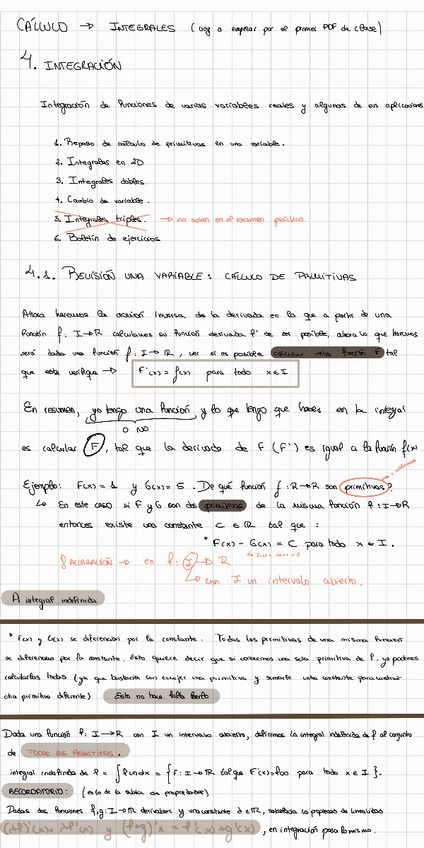 CÁLCULO → INTEGRALES (voy a empezar por el primer PDF de clase)
4. INTEGRACIÓN
Integración de funciones de varias variables reales y algunas de sus aplicaciones
1. Repaso de cálculo de primitivas en una variable.
2. Integrales en 2D
3. Integrales dobles
4. Cambio de variable.
5. Integrales triples. → no salen en el examen práctico
6. Boletín de ejercicios
4.1. REVISIÓN UNA VARIABLE: CÁLCULO DE PRIMITIVAS
Ahora haremos la acción inversa de la derivada en la que a partir de una
función f: I→R calculamos su función derivada f' de ser posible, ahora lo que haremos
será dada una función f: I→R, ver si es posible calcular una función F tal
que esta verifique → F'(x) = f(x) para todo x∈I
En resumen, yo tengo una función y lo que tengo que hacer en la integral
es calcular F, tal que la derivada de F (F') es igual a la función f(x)
Ejemplo: F(x) = 1 y G(x) = 5. De qué función f: R→R son primitivas?
↳ En este caso si F y G son dos primitivas de la misma función f: I→R
entonces existe una constante C ∈ R tal que:
* F(x) - G(x) = C para todo x ∈ I.
ACLARACIÓN → en f: I → R
↳ con I un intervalo abierto.
A integral indefinida
* F(x) y G(x) se diferencian por la constante. Todas las primitivas de una misma función
se diferencian por la constante. Esto quiere decir que si conocemos una sola primitiva de f, ya podemos
calcularlas todas (ya que bastaría con coger una primitiva y sumarle una constante para
otra primitiva diferente) Esto no hace falta
Dada una función f: I→R con I un intervalo abierto, definimos la integral indefinida de f al conjunto
de TODAS SUS PRIMITIVAS.
integral indefinida de f = ∫f(x)dx = {F: I→R tal que F'(x)=f(x) para todo x∈I}.
RECORDATORIO: (es lo de la tabla de propiedades)
Dadas dos funciones f,g: I→R derivables y una constante λ∈R, la propiedad de linealidad
(λf)'(x)=λf'(x) y (f+g)'x = f'(x)+g'(x), en integración pasa lo mismo.